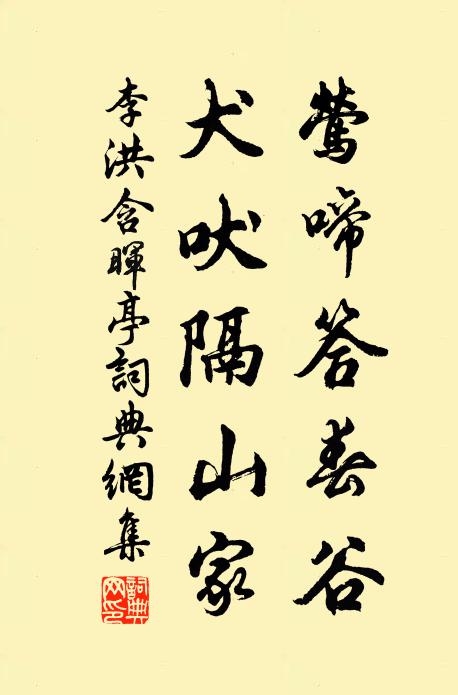 鶯啼答春谷
犬吠隔山家
李洪含暉亭詞典網集
詞典網印